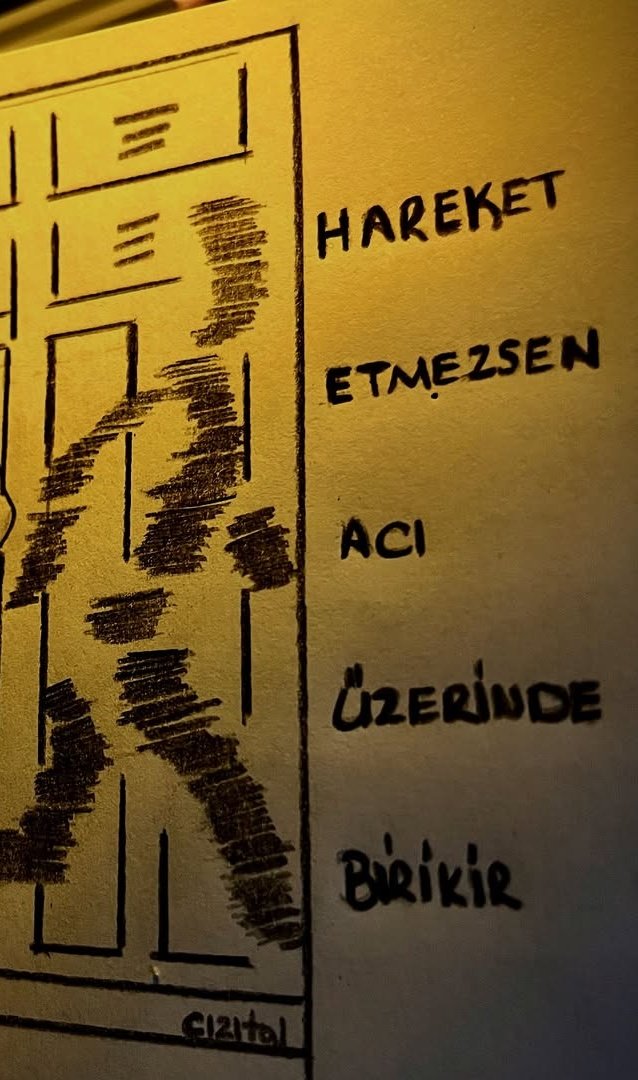 HAREKET
ETMEZSEN
ACI
ÜZERİNDE
BİRİKİR
çızıtal